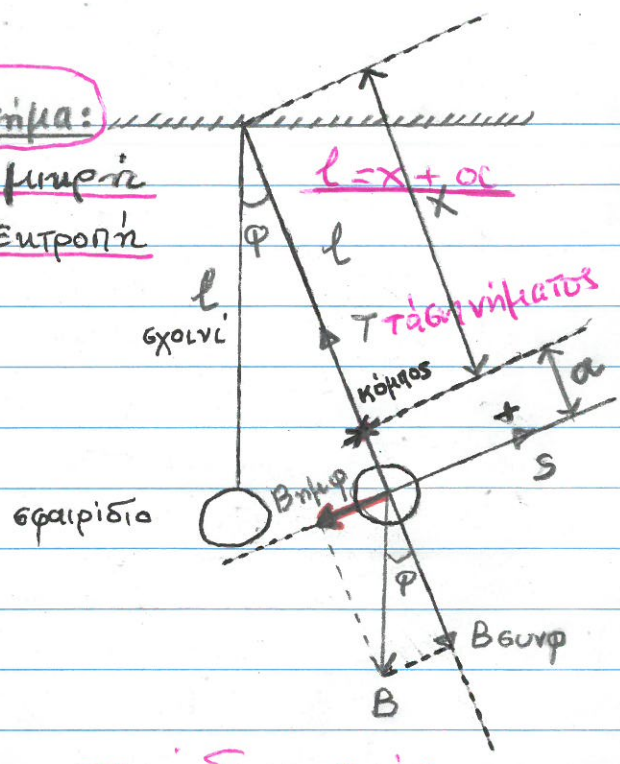 ήμα:
μικρή
Εκτροπή
l = x + α
x
φ
l
l
σχοινί
T τάση νήματος
κόμπος
α
+
S
Βημφ
σφαιρίδιο
φ
Βσυνφ
B